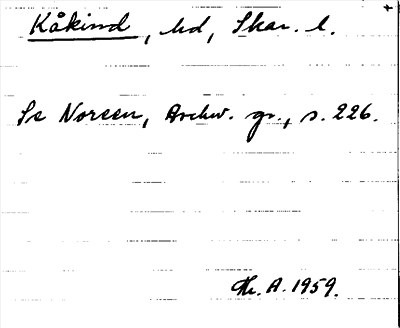 Kåkind, hd, Skar. l.
Se Noreen, Archiv. gr., s. 226.
Th. A. 1959.